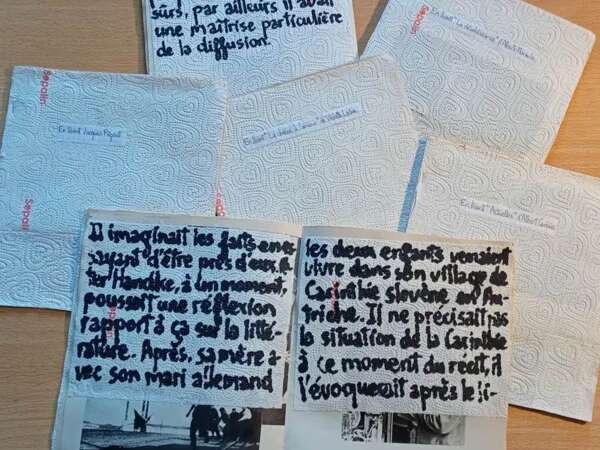 sûrs, par ailleurs il avait
une maîtrise particulière
de la diffusion.
Sepalin
En lisant
d'Albert
Sepalin
En lisant Jacques
Sepalin
En lisant "La
de Violette Leduc
Sepalin
En lisant "Actuelles" d'Albert Camus
Il imaginait les faits en es
sayant d'être près d'eux. Pe
ter Handke, à un moment,
poussait une réflexion
rapport à ça sur la litté-
rature. Après, sa mère a-
vec son mari allemand
les deux enfants venaient
vivre dans son village de
Carinthie slovène en Au-
triche. Il ne précisait pas
la situation de la Carinthie
à ce moment du récit, il
l'évoquerait après le li-